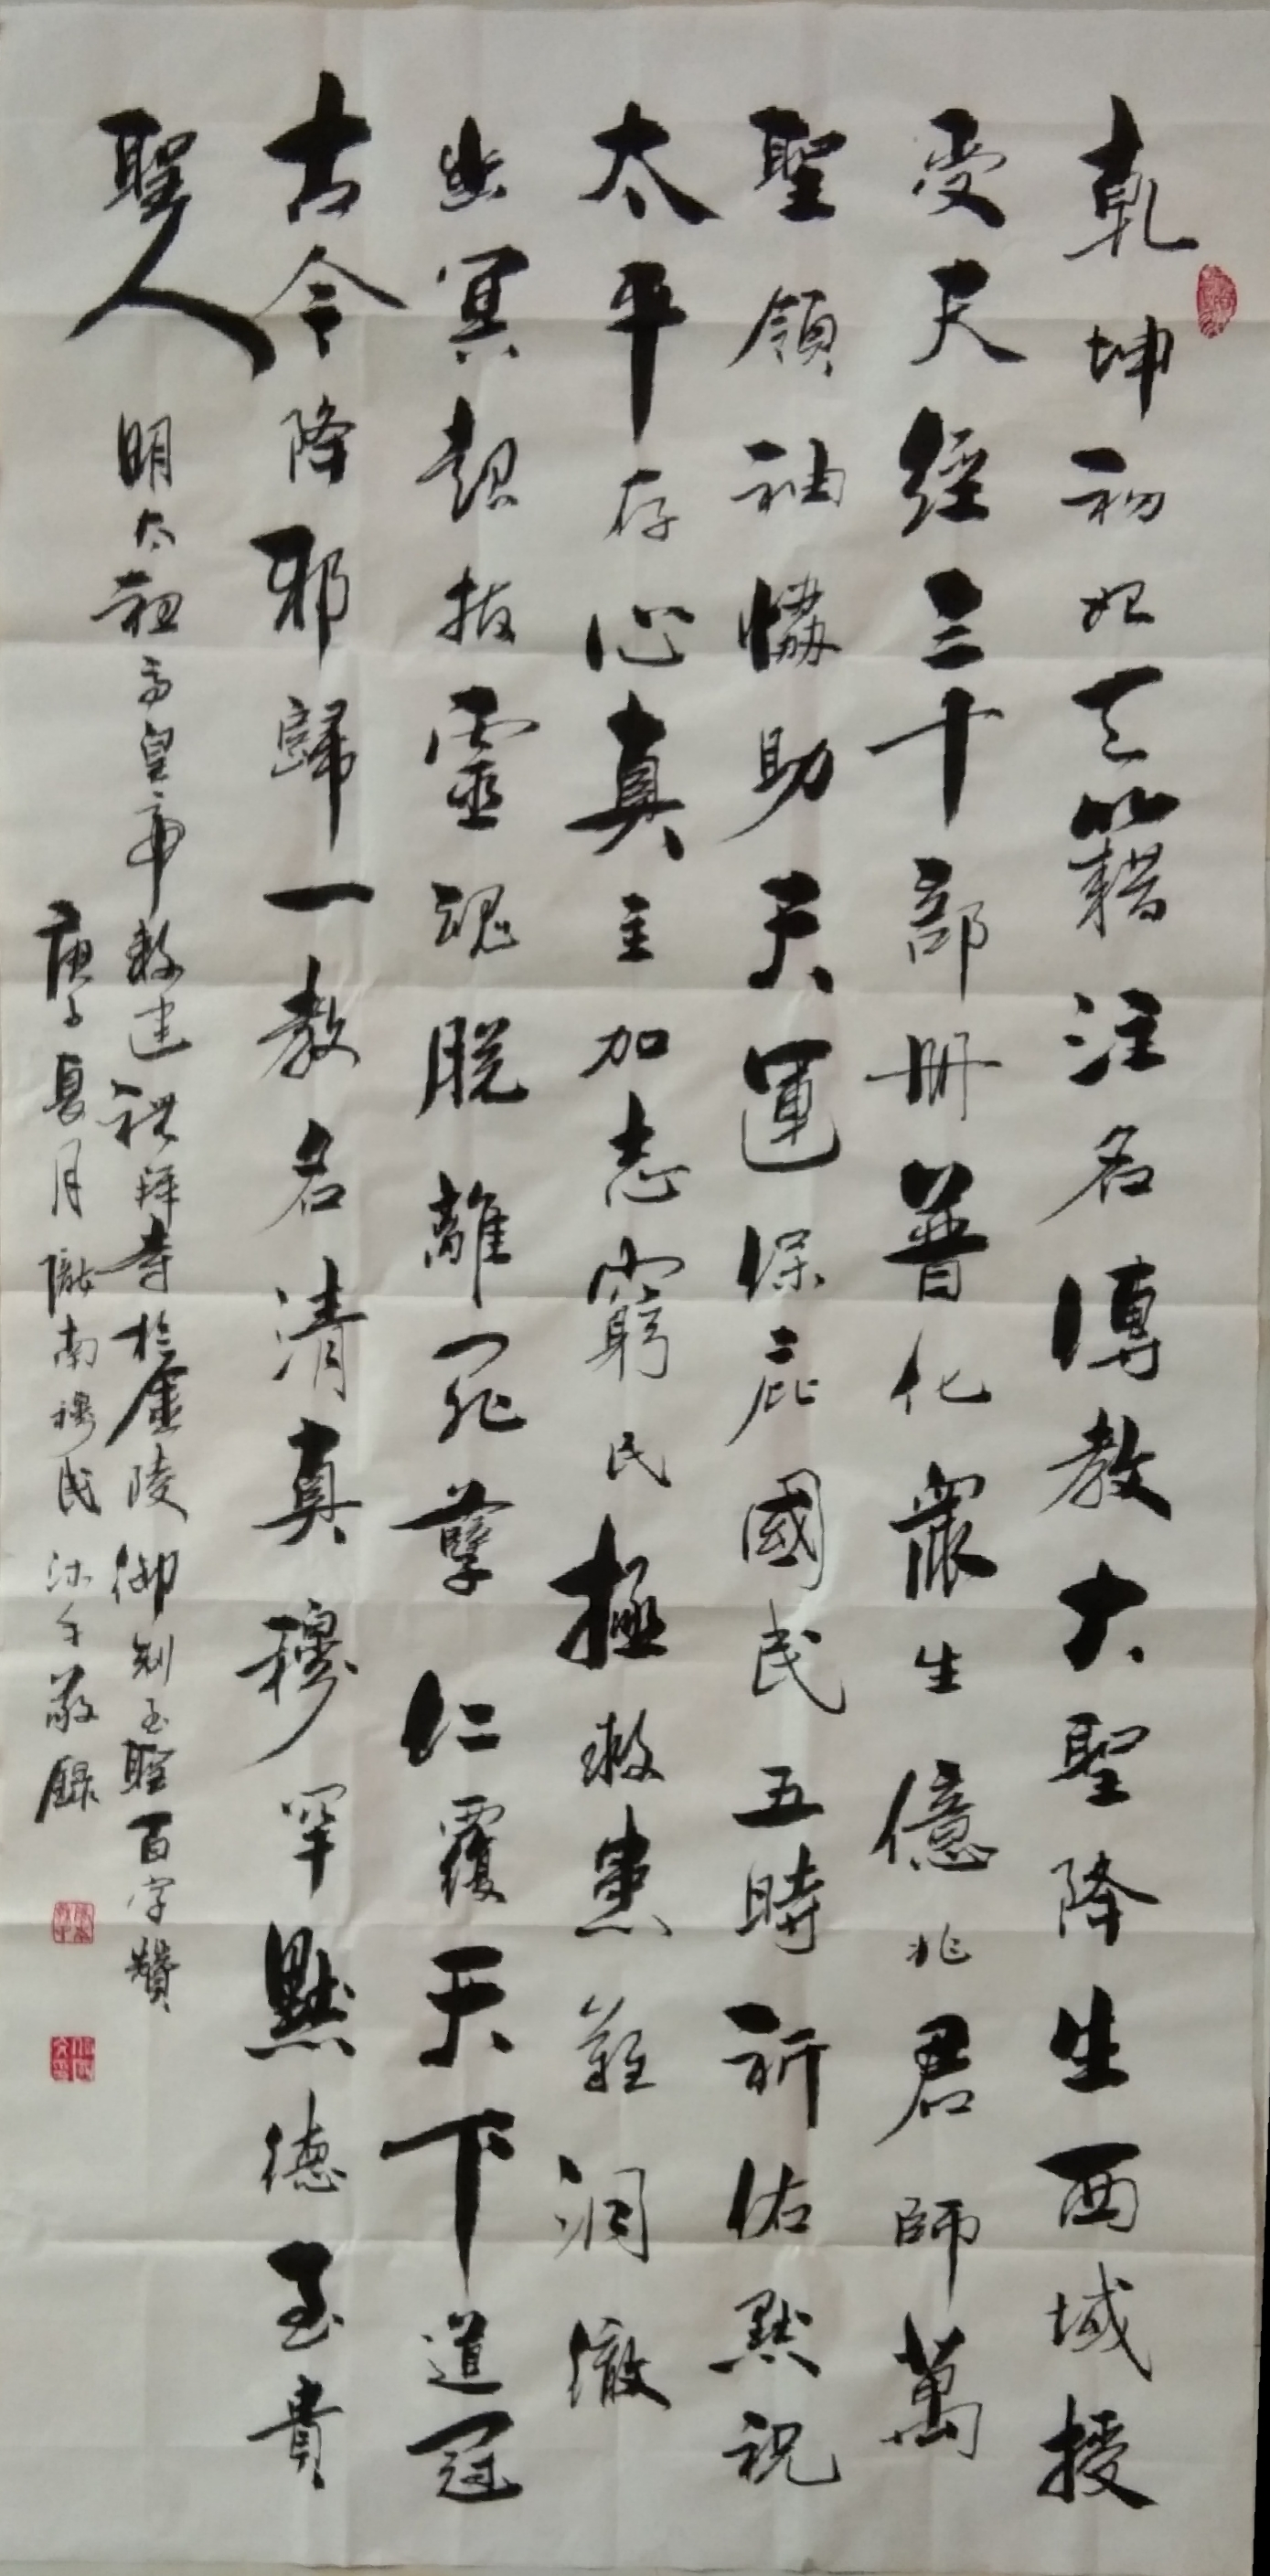 乾坤初始天籍注名傳教大聖降生西域授
受天經三十部冊普化眾生億兆君師萬
聖領袖協助天運保庇國民五時祈佑默祝
太平存心真主加志窮民拯救患難洞徹
幽冥超拔靈魂脫離罪孽仁覆天下道冠
古今降邪歸一教名清真穆罕默德至貴
聖人
明太祖高皇帝敕建禮拜寺於金陵御制至聖百字讚
庚子夏月隴南穆民沐手敬錄